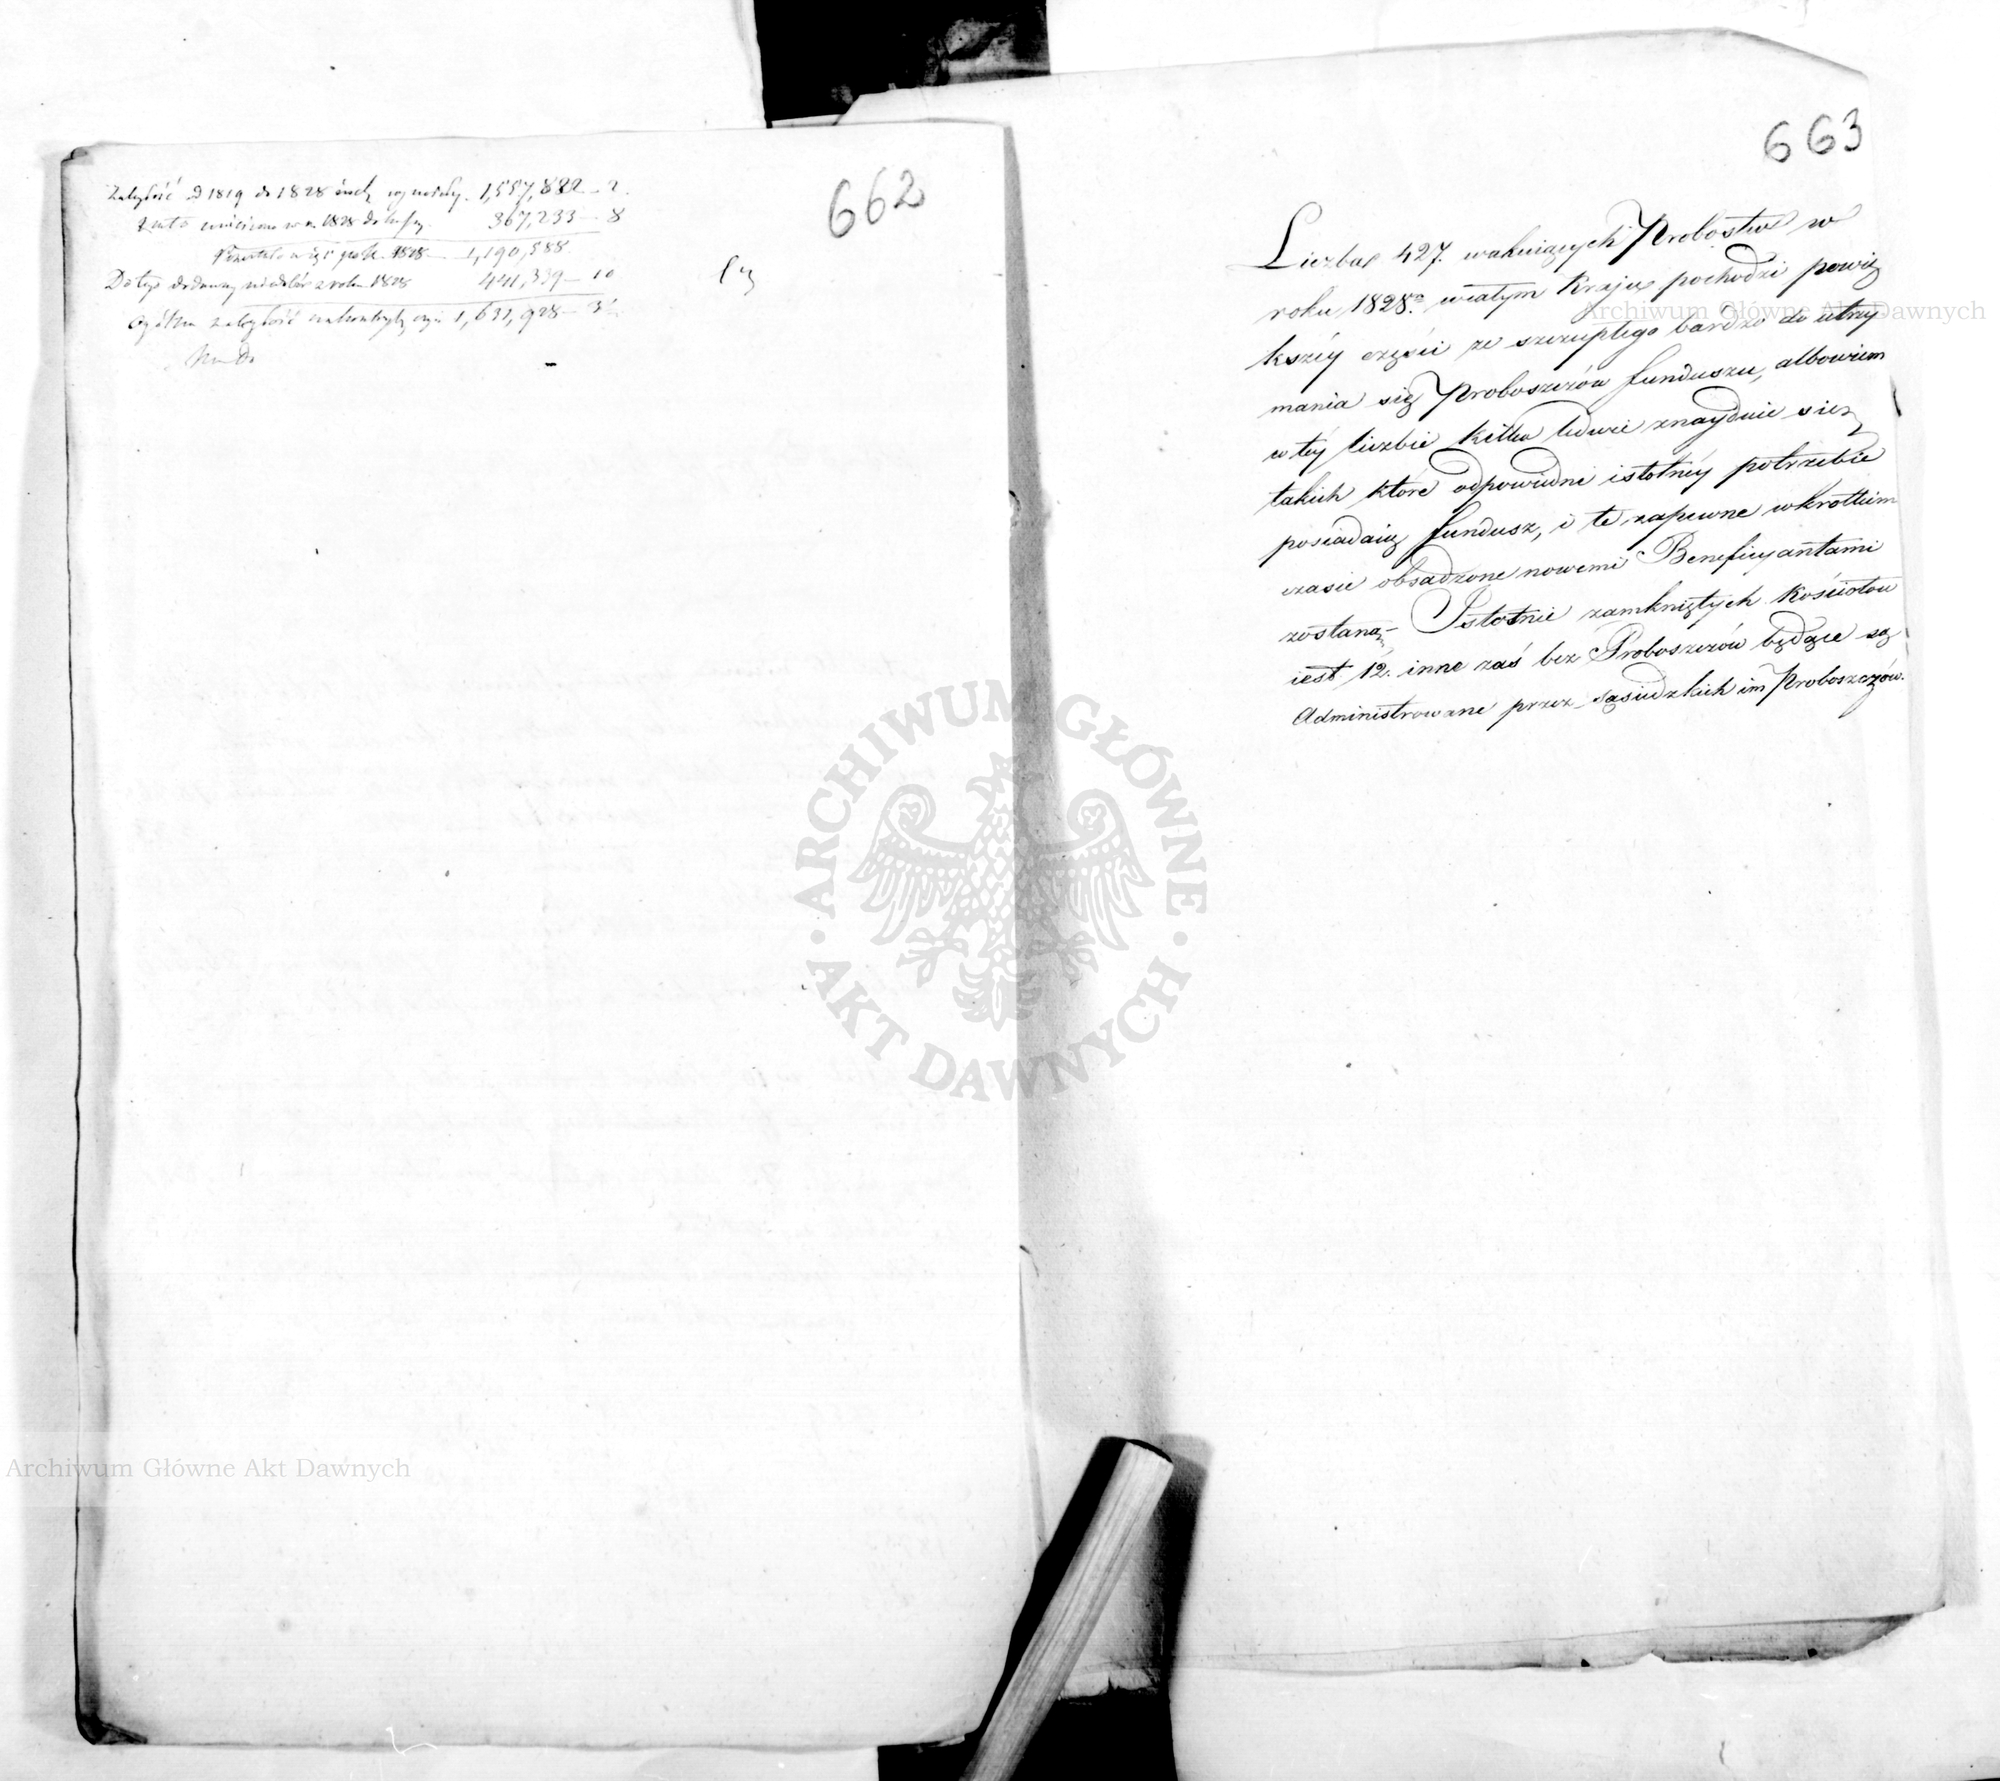 662
Zaległość od 1819 do 1828 wynosiła 1,557,822 – 2
Z tego wniesiono w r. 1828 do kassy 367,233 – 8
Pozostało więc 1828 1,190,588
Do tego dodawszy z roku 1828 441,339 – 10
Ogólna zaległość czyni 1,631,928 – 3
663
Liczba 427. wakuiących Probostw w
roku 1828.º w całym Kraju pochodzi powię
kszéy części ze szczupłego bardzo do utrzy
mania się Proboszczów funduszu, albowiem
w téy liczbie kilka ledwie znayduie się
takich które odpowiedni istotnéy potrzebie
posiadaią fundusz, i te zapewne w krotkim
czasie obsadzone nowemi Beneficyantami
zostaną – Istotnie zamkniętych Kościołow
iest 12. inne zaś bez Proboszczów będące są
Administrowane przez sąsiedzkich im Proboszczów.
Archiwum Główne Akt Dawnych
ARCHIWUM GŁÓWNE AKT DAWNYCH
Archiwum Główne Akt Dawnych